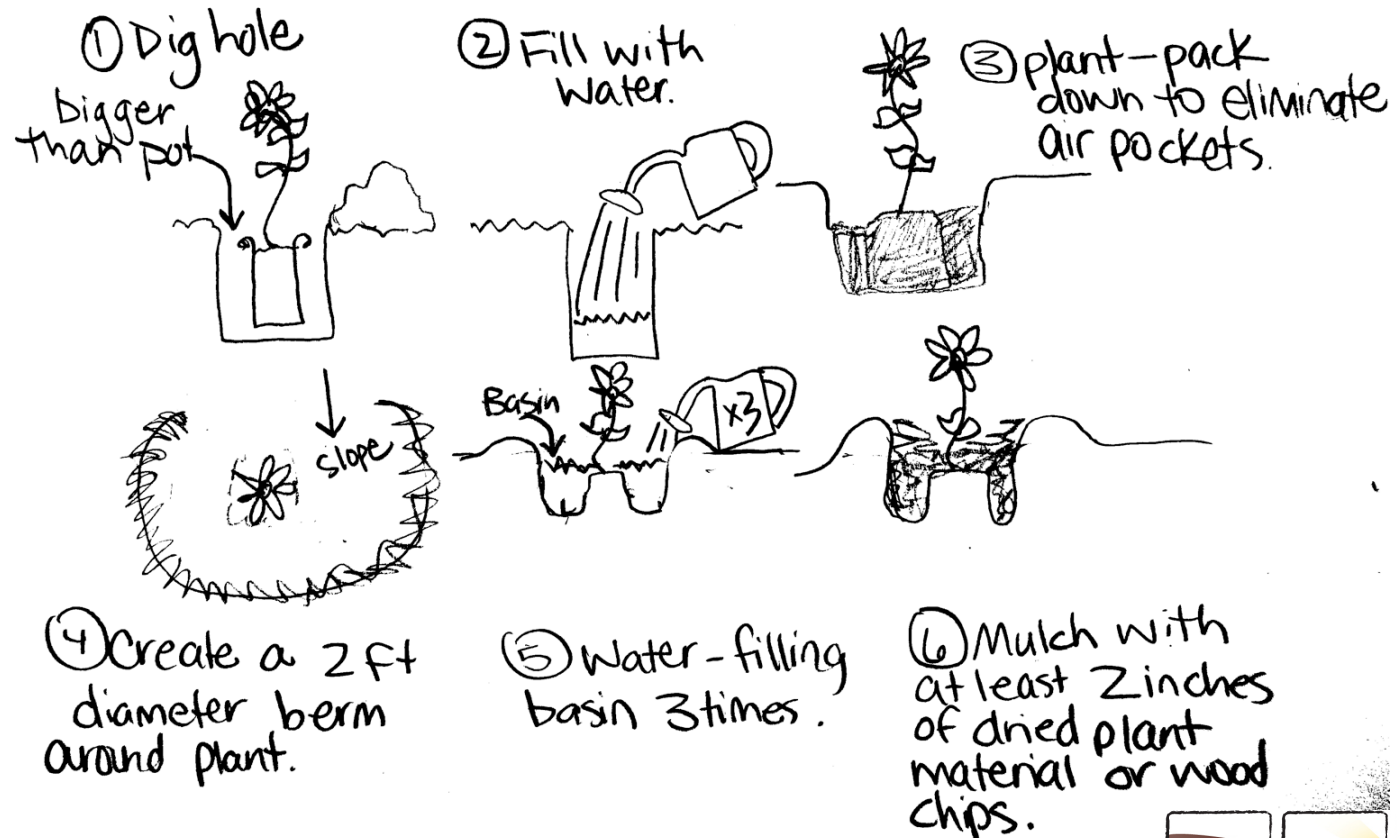 ① Dig hole
bigger
than pot
② Fill with
water.
③ plant-pack
down to eliminate
air pockets.
slope
Basin
x3
④ Create a 2ft
diameter berm
around plant.
⑤ Water-filling
basin 3 times.
⑥ Mulch with
at least 2 inches
of dried plant
material or wood
chips.